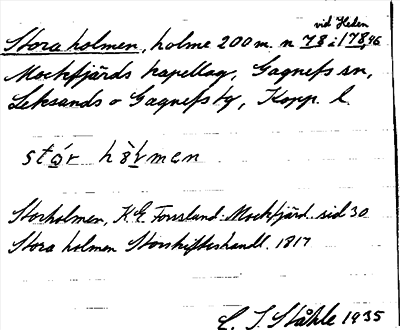 vid Heden
Stora holmen, holme 200 m. n 78 i 178,96
Mockfjärds kapellag, Gagnefs sn,
Leksands o Gagnefs tg, Kopp. l.
stǫ́r hòłmen
Storholmen, K.E. Forsslund: Mockfjärd. sid 30
Stora holmen Storskifteshandl. 1817
C. I. Ståhle 1935